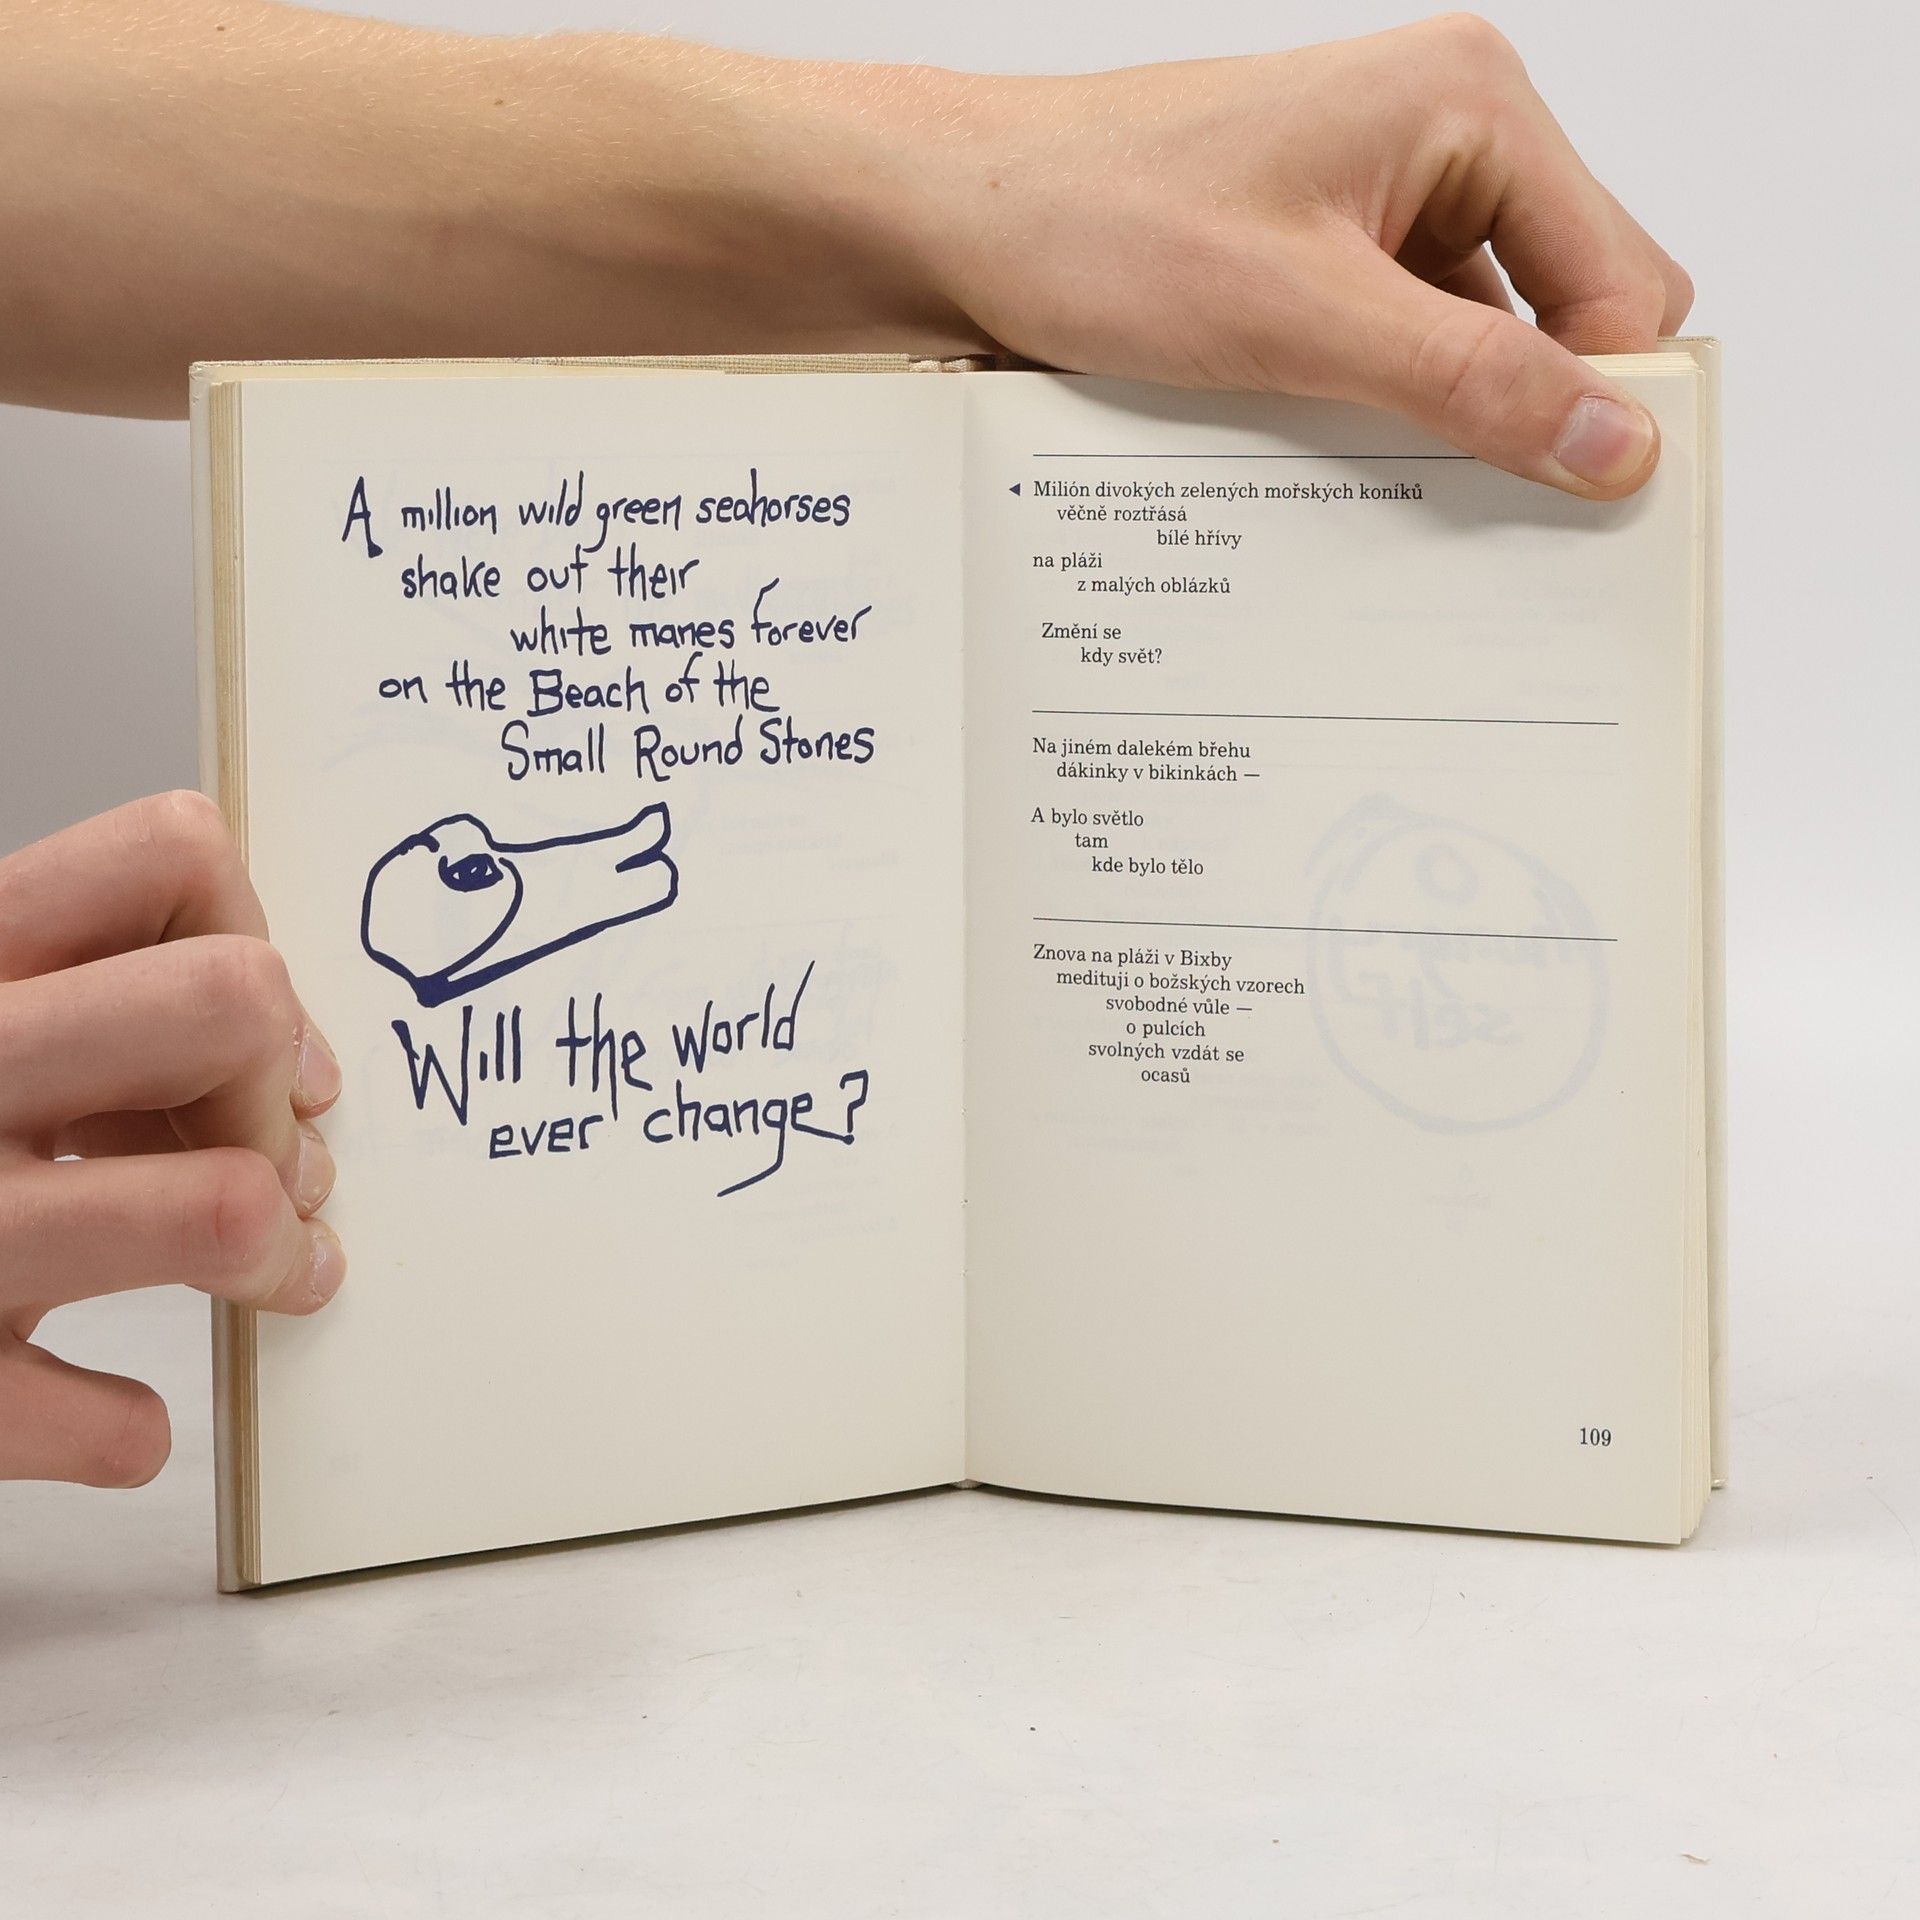 A million wild green seahorses
shake out their
white manes forever
on the Beach of the
Small Round Stones
Will the world
ever change?
Milión divokých zelených mořských koníků
věčně roztřásá
bílé hřívy
na pláži
z malých oblázků
Změní se
kdy svět?
Na jiném dalekém břehu
dákinky v bikinkách —
A bylo světlo
tam
kde bylo tělo
Znova na pláži v Bixby
medituji o božských vzorech
svobodné vůle —
o pulcích
svolných vzdát se
ocasů
109